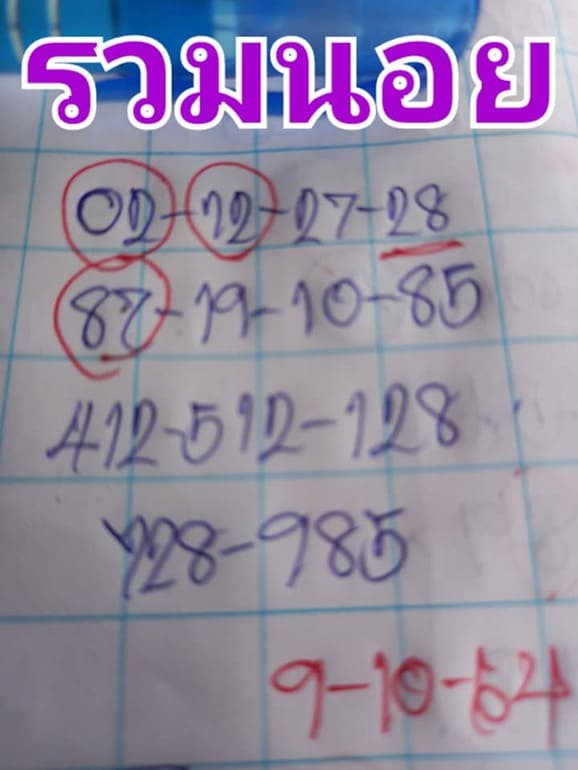 รวมนอย
02-12-27-28
87-19-10-85
412-512-128
728-985
9-10-64